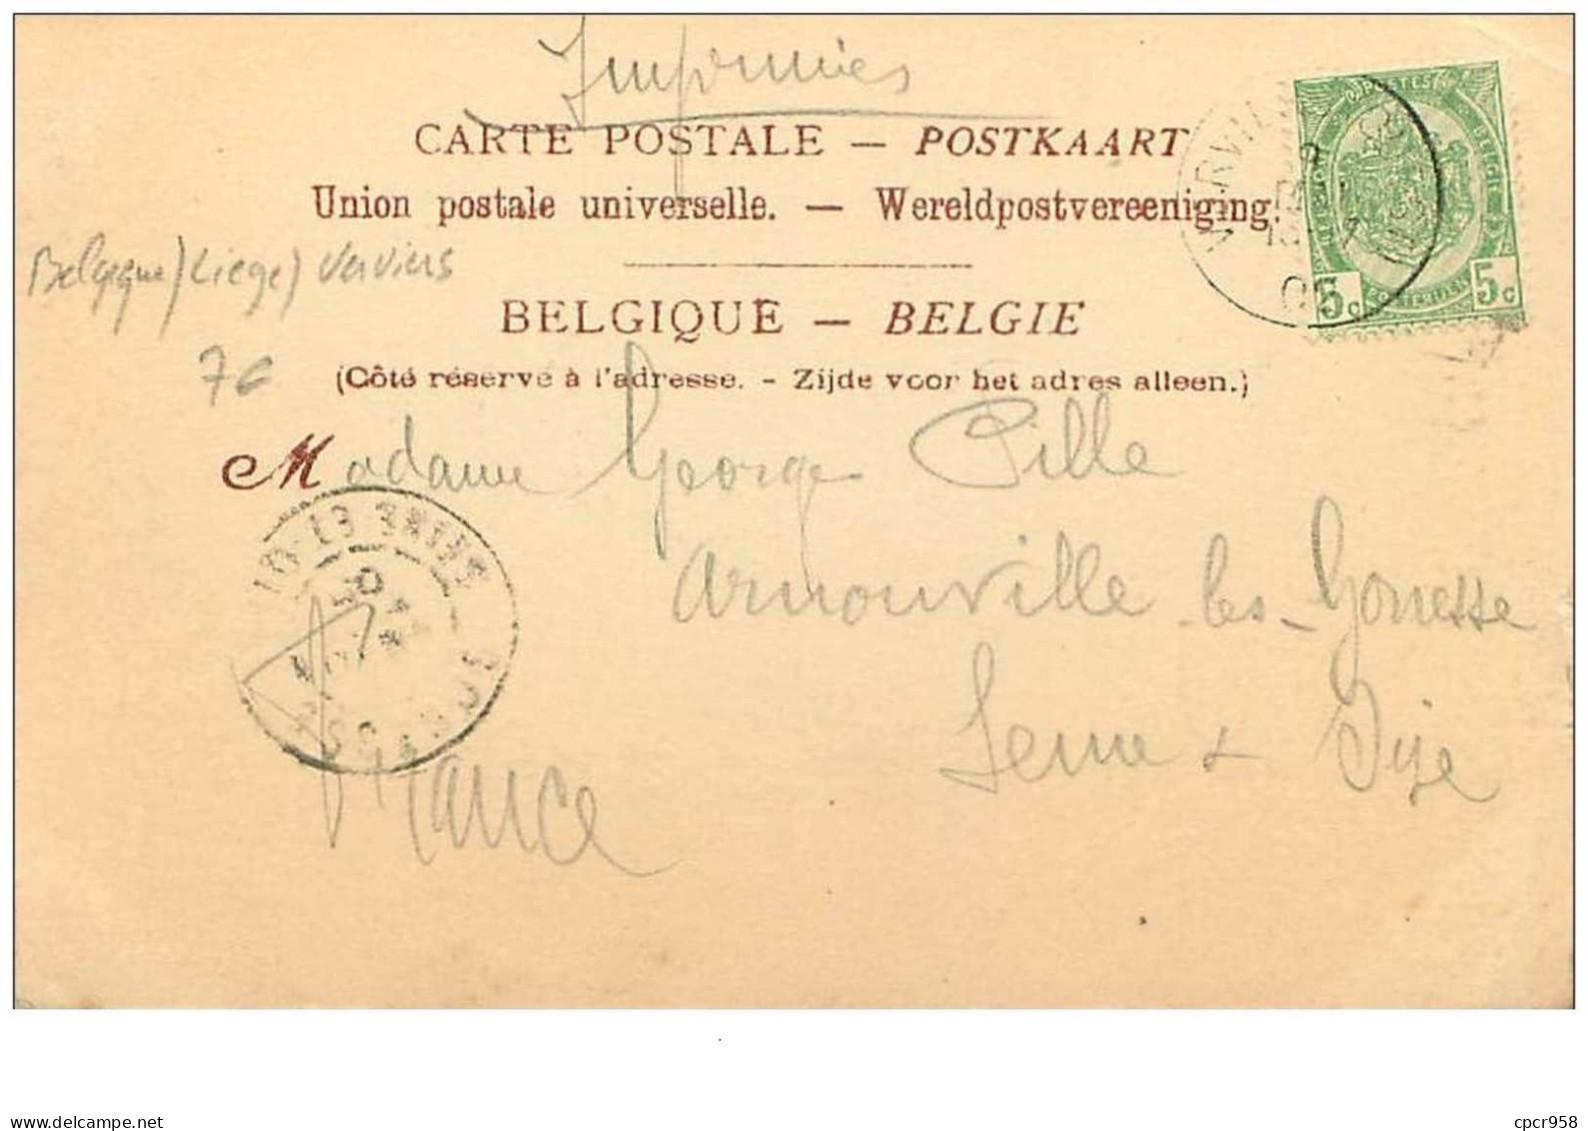 Imprimés
CARTE POSTALE — POSTKAART
Union postale universelle. — Wereldpostvereeniging.
Belgique/Liege/Verviers
BELGIQUE — BELGIE
POSTES
BELGIE
5c 5c
7€
(Côté réservé à l'adresse. - Zijde voor het adres alleen.)
Madame George Pille
SEINE ET
Arnouville-les-Gonesse
Seine & Oise
France
www.delcampe.net
cpcr958